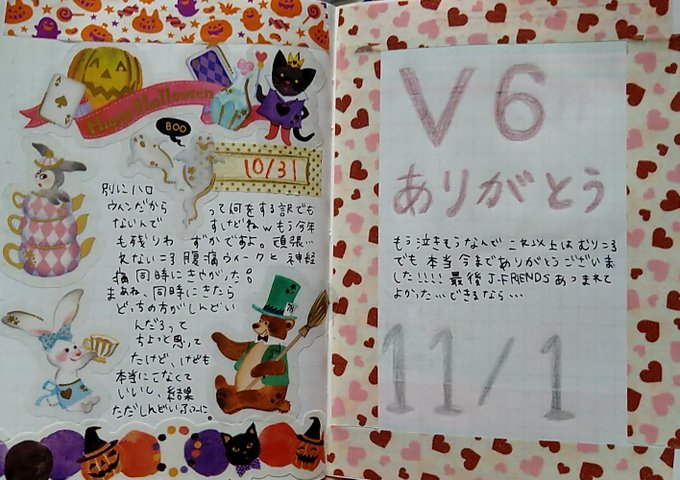 Happy Halloween
A
BOO
10/31
別にハロ
ウィンだから って何をする訳でも
ないんで すけどねwもう今年
も残りわ ずかですよ。頑張…
れないころ腹痛ウィークと 神経
痛 同時にきやがった。
まぁね、同時にきたら
どっちの方がしんどい
んだろって
ちょっと思って
たけど、けども
本当にこなくて
いいし、結果
ただしんどいふつーに。
V6
ありがとう
もう泣きそうなんで これ以上はむりころ
でも 本当 今までありがとうございま
した!!!! 最後 J-FRIENDS あつまれて
よかった…できるなら…
11/1